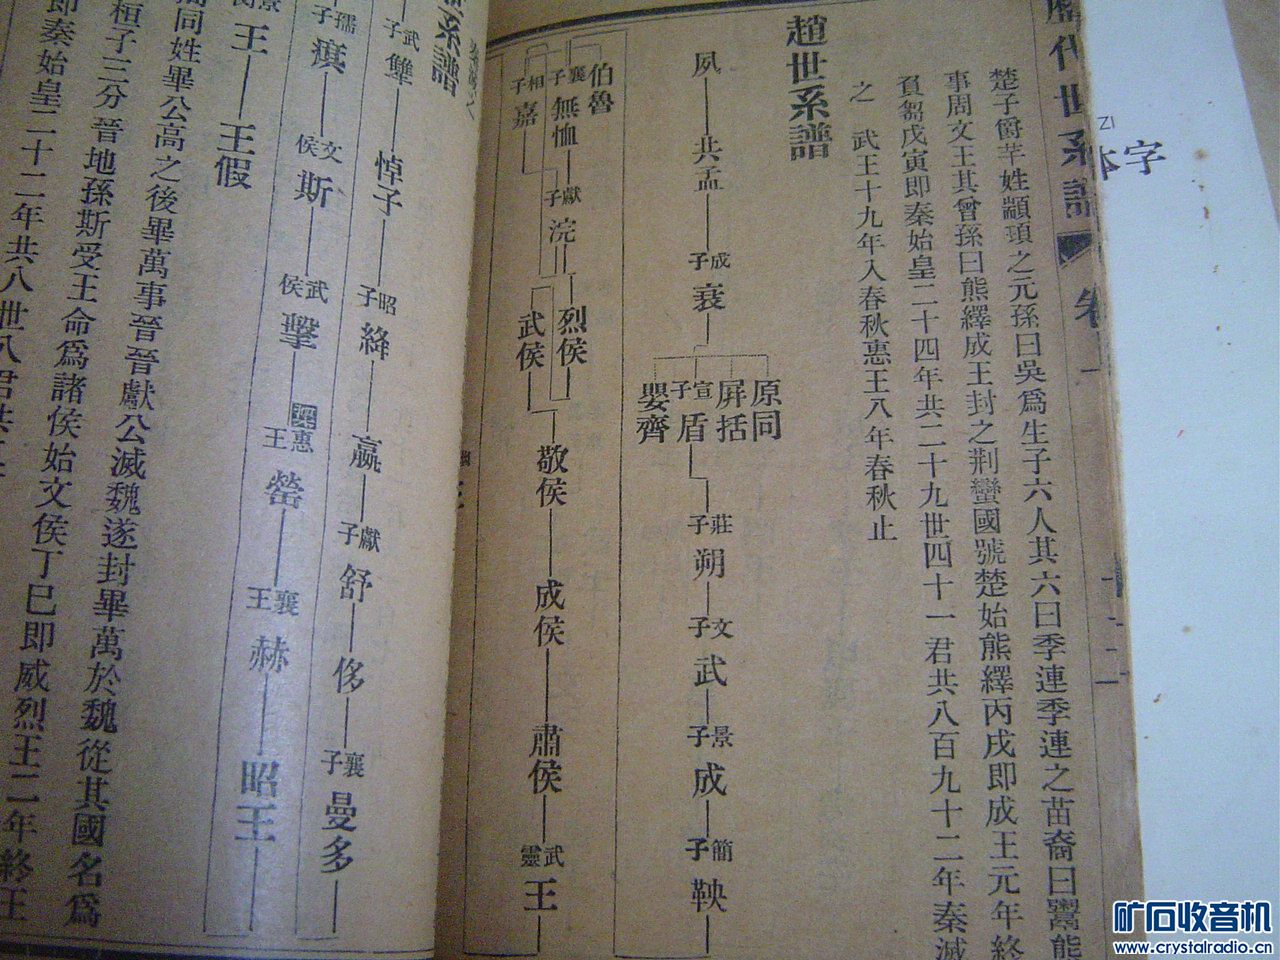 歷代世系譜
楚子爵芊姓顓頊之元孫曰吳爲生子六人其六曰季連季連之苗裔曰鬻熊
事周文王其曾孫曰熊繹成王封之荆蠻國號楚始熊繹丙戌即成王元年終
負芻戊寅即秦始皇二十四年共二十九世四十一君共八百九十二年秦滅
之 武王十九年入春秋惠王八年春秋止
趙世系譜
夙 共孟 成子 衰
原同
屏括
宣子 盾
嬰齊
莊子 朔 文子 武 景子 成 簡子 鞅
伯魯
襄子 無恤 獻子 浣
桓子 嘉
烈侯
武侯
敬侯 成侯 肅侯 武靈王
系譜
武子 犨 悼子 昭子 絳 嬴 獻子 舒 侈 襄子 曼多
文侯 斯 武侯 擊 惠王 罃 襄王 赫 昭王
王 王假
同姓畢公高之後畢萬事晉晉獻公滅魏遂封畢萬於魏從其國名爲
桓子三分晉地孫斯受王命爲諸侯始文侯丁巳即威烈王二年終王
即秦始皇二十二年共八世八君共
ZI
体字
矿石收音机
www.crystalradio.cn